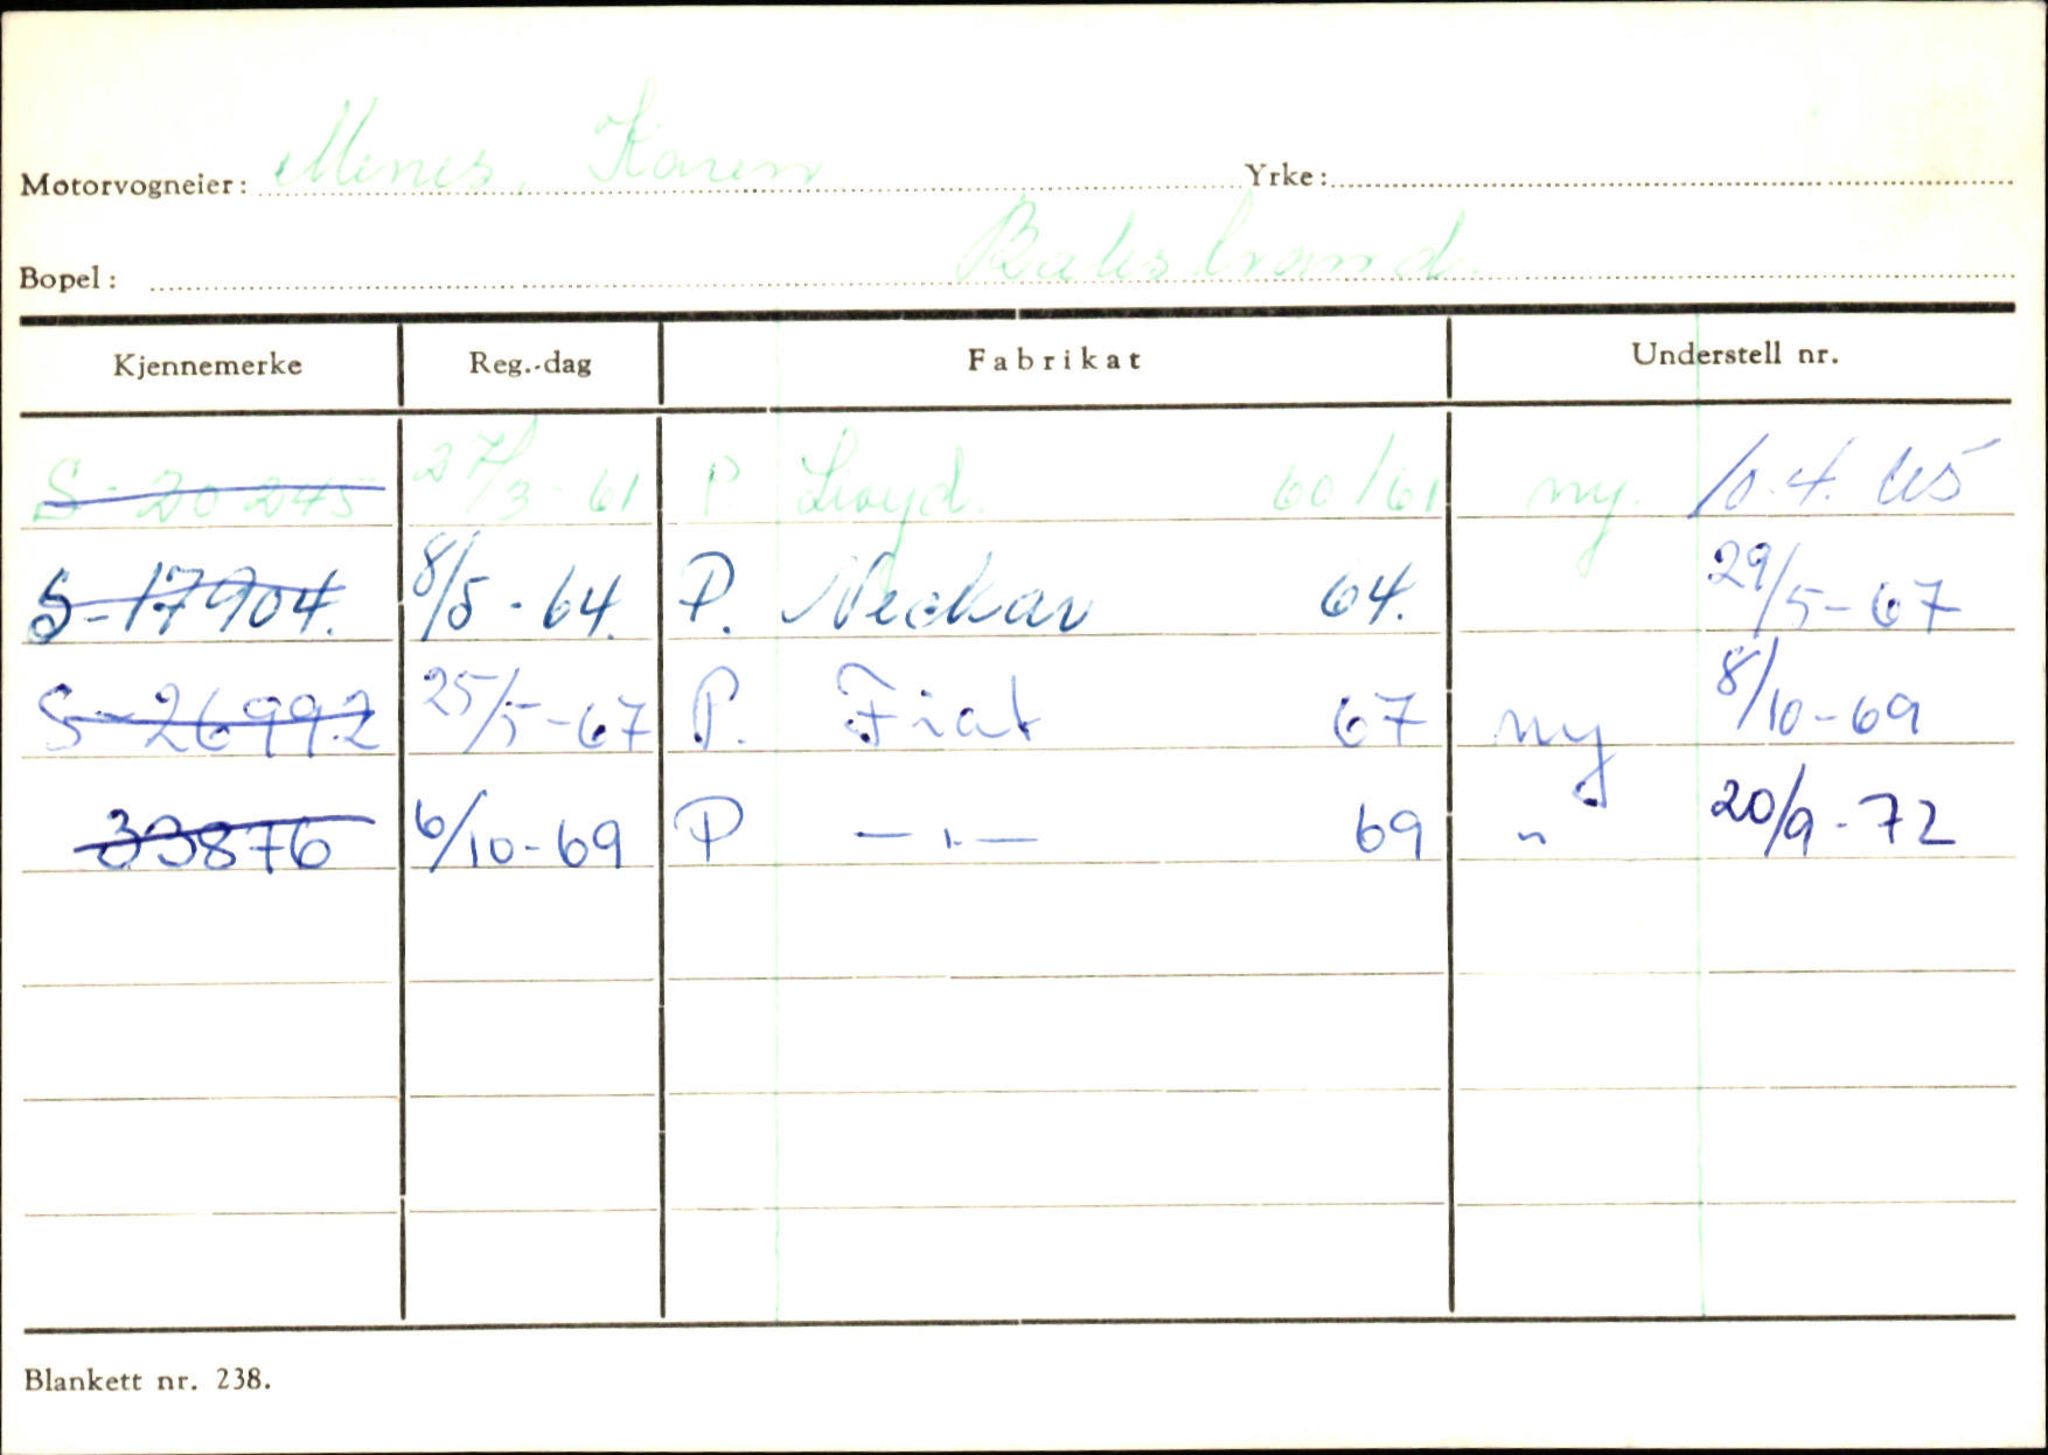 Motorvogneier: Menes, Karen Yrke:
Bopel: Balestrand.
Kjennemerke Reg.-dag Fabrikat Understell nr.
S-20245 27/3-61 P Lloyd. 60/61 ny. 10.4.65
S-17904. 8/5-64. P. Neckar 64. 29/5-67
S-26992 25/5-67 P. Fiat 67 ny 8/10-69
33876 6/10-69 P —"— 69 " 20/9-72
Blankett nr. 238.